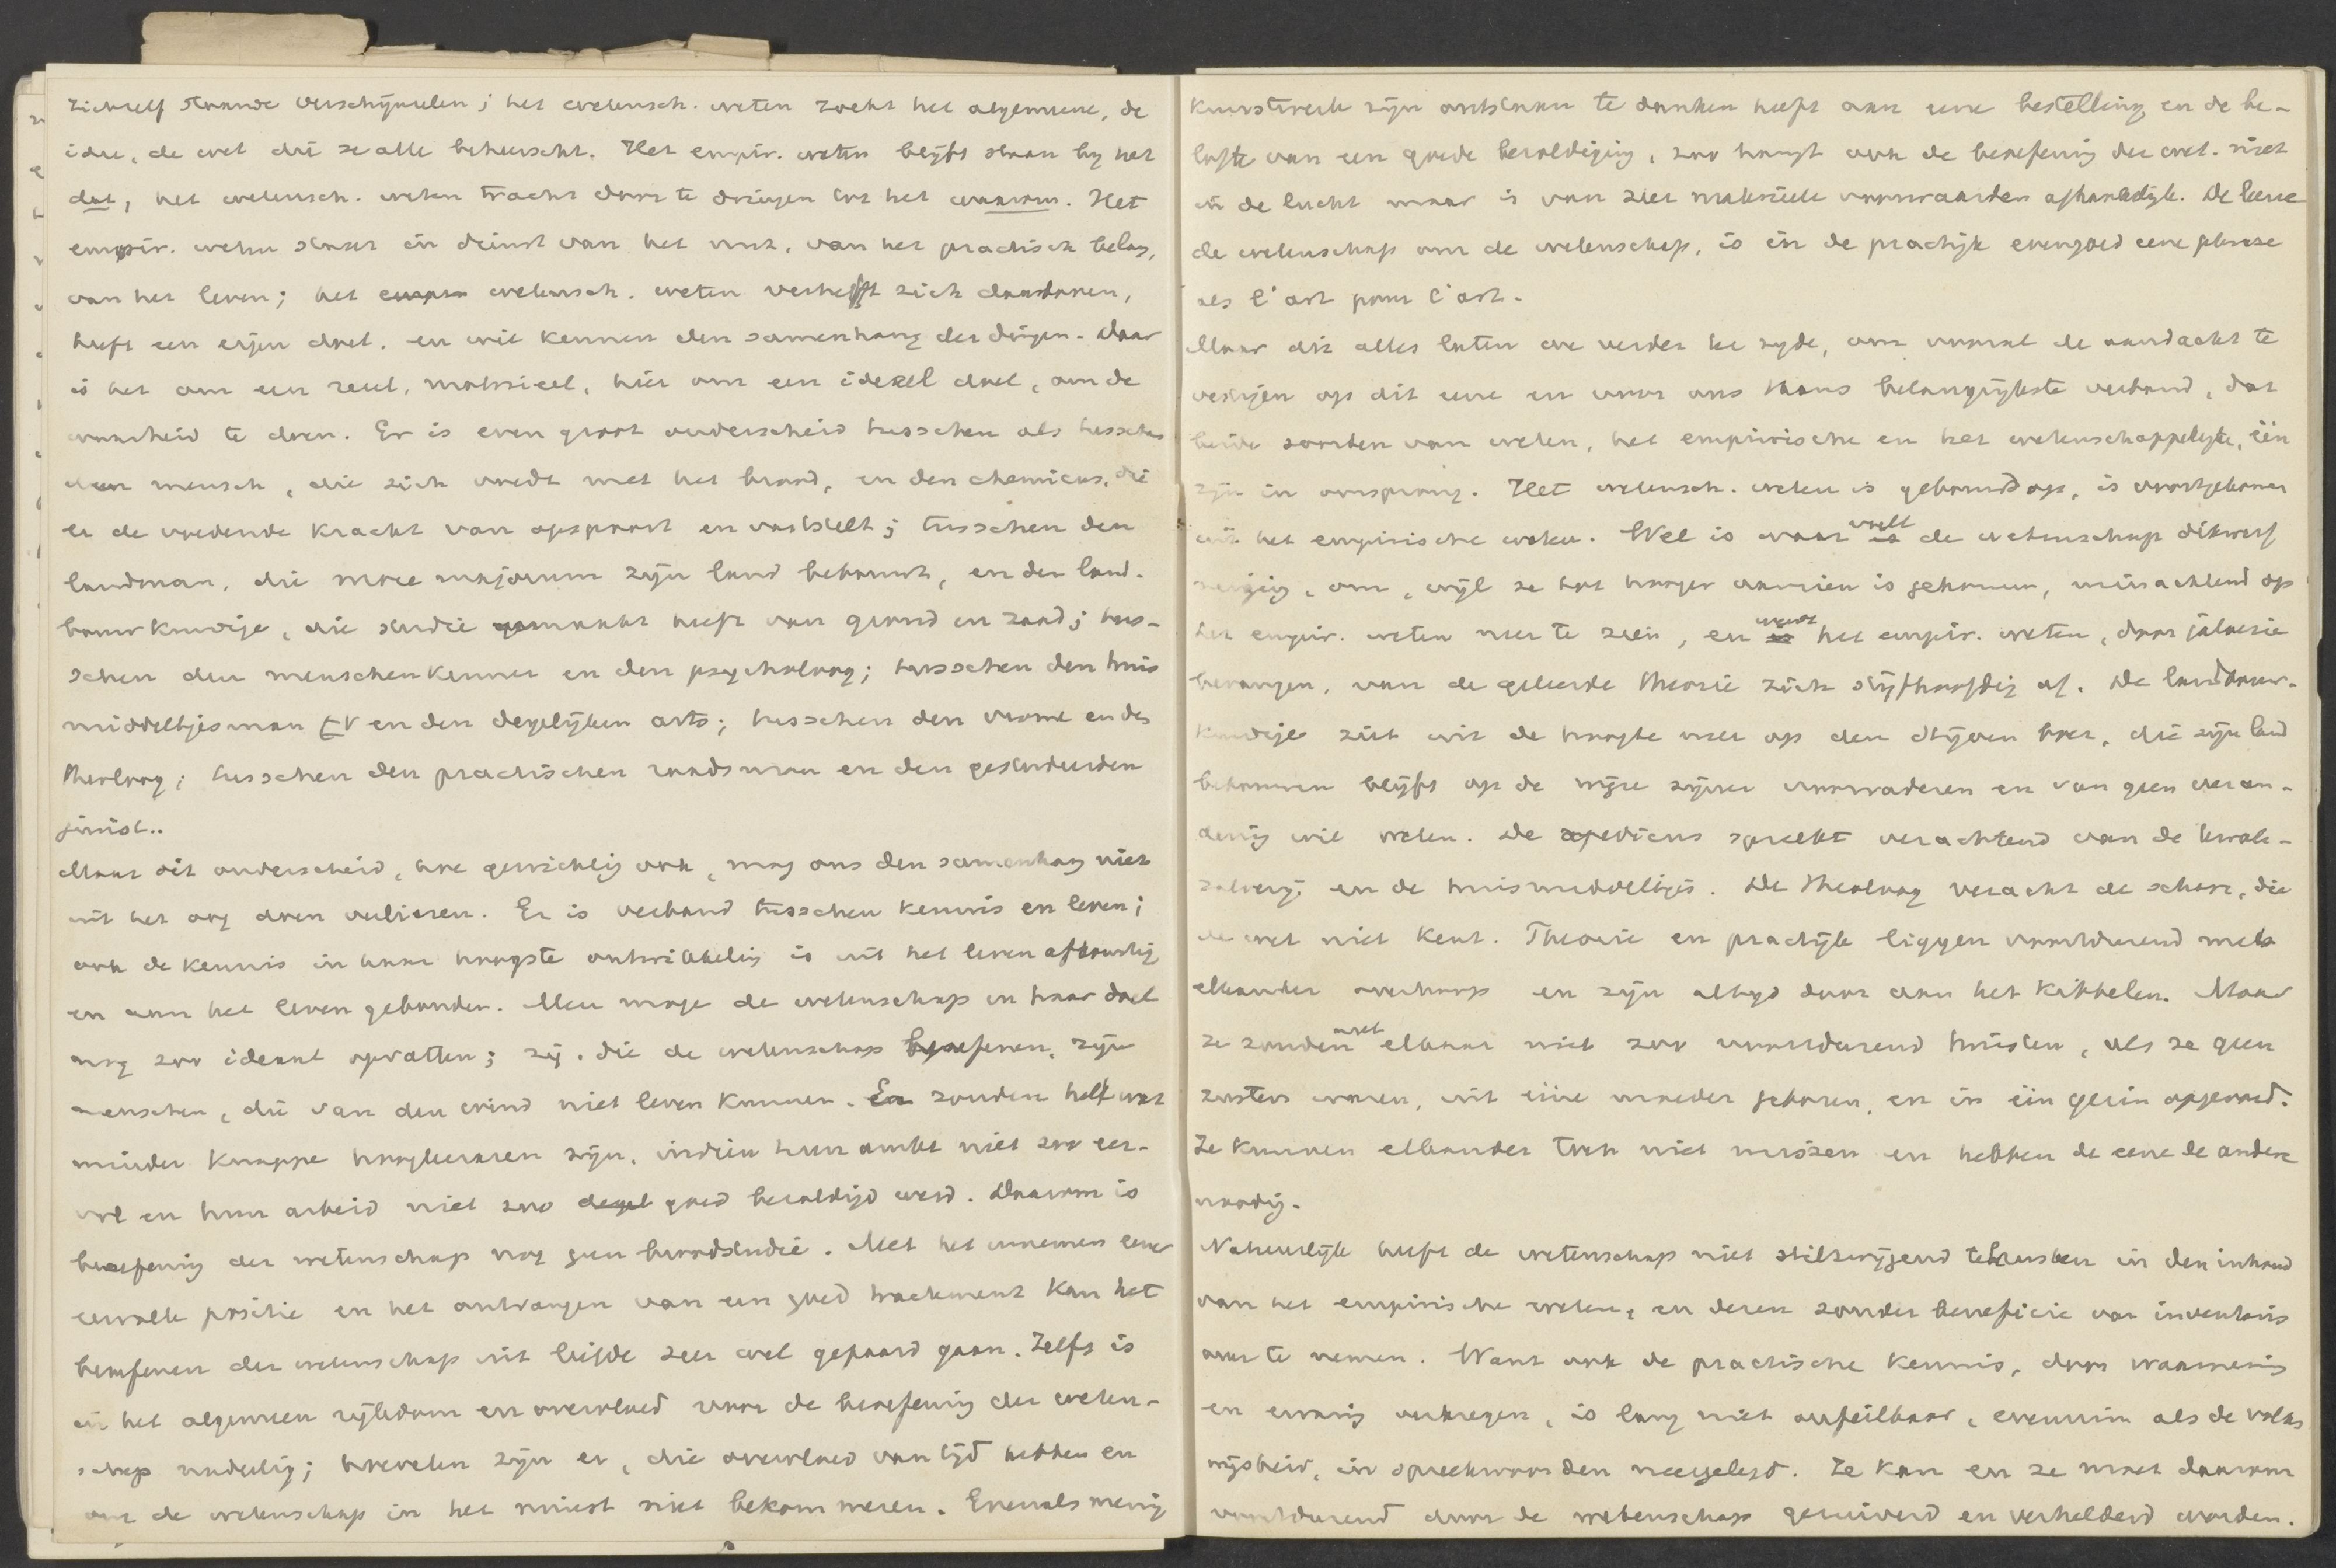 zichzelf staande verschijnselen; het wetensch. weten zoekt het algemeene, de
idee, de wet die ze alle beheerscht. Het empir. weten blijft staan bij het
dat, het wetensch. weten tracht door te dringen tot het waarom. Het
empir. weten staat in dienst van het nut, van het practisch belang,
van het leven; het wetensch. weten verheft zich daarboven,
heeft een eigen doel, en wil kennen den samenhang der dingen. Daar
is het om een reëel, materieel, hier om een ideëel doel, om de
waarheid te doen. Er is even groot onderscheid tusschen als tusschen
den mensch, die zich voedt met het brood, en den chemicus, die
er de voedende kracht van opspoort en vaststelt; tusschen den
landman, die more majorum zijn land bebouwt, en den land-
bouwkundige, die studie gemaakt heeft van grond en zaad; tus-
schen den menschenkenner en den psycholoog; tusschen den huis
middeltjesman en den degelijken arts; tusschen den vrome en den
theoloog; tusschen den practischen raadsman en den gestudeerden
jurist..
Maar dit onderscheid, hoe gewichtig ook, mag ons den samenhang niet
uit het oog doen verliezen. Er is verband tusschen kennis en leven;
ook de kennis in haar hoogste ontwikkeling is uit het leven afkomstig
en aan het leven gebonden. Men moge de wetenschap en haar doel
nog zoo ideaal opvatten; zij, die de wetenschap beoefenen, zijn
menschen, die van den wind niet leven kunnen. Er zouden heel wat
minder knappe hoogleeraren zijn, indien hun ambt niet zoo eer-
vol en hun arbeid niet zoo goed bezoldigd werd. Daarom is
beoefening der wetenschap nog geen broodstudie. Met het innemen eener
eervolle positie en het ontvangen van een goed tractement kan het
beoefenen der wetenschap uit liefde zeer wel gepaard gaan. Zelfs is
in het algemeen rijkdom en overvloed voor de beoefening der weten-
schap nadeelig; hoevelen zijn er, die overvloed van tijd hebben en
om de wetenschap in het minst niet bekommeren. Evenals menig
kunstwerk zijn ontstaan te danken heeft aan eene bestelling en de be-
lofte van een goede bezoldiging, zoo hangt ook de beoefening der wet. niet
in de lucht maar is van zeer materieele voorwaarden afhankelijk. De leuze
de wetenschap om de wetenschap, is in de practijk evengoed eene phrase
als l'art pour l'art.
Maar dit alles laten we verder ter zijde, om vooral de aandacht te
vestigen op dit eene en voor ons thans belangrijkste verband, dat
beide soorten van weten, het empirische en het wetenschappelijke, één
zijn in oorsprong. Het wetensch. weten is gebouwd op, is voortgekomen
uit het empirische weten. Wel is waar voelt de wetenschap dikwerf
neiging, om, wijl ze tot hooger aanzien is gekomen, minachtend op
het empir. weten neer te zien, en wendt het empir. weten, door jaloezie
bevangen, van de geleerde theorie zich stijfhoofdig af. De landbouw-
kundige ziet uit de hoogte neer op den stijven boer, die zijn land
bebouwen blijft op de wijze zijner voorvaderen en van geen veran-
dering wil weten. De medicus spreekt verachtend van de kwak-
zalverij en de huismiddeltjes. De theoloog veracht de schare, die
de wet niet kent. Theorie en practijk liggen voortdurend met
elkander overhoop en zijn altijd door aan het kibbelen. Maar
ze zouden met elkaar niet zoo voortdurend twisten, als ze geen
zusters waren, uit ééne moeder geboren, en in één gezin opgevoed.
Ze kunnen elkander toch niet missen en hebben de eene de andere
noodig.
Natuurlijk heeft de wetenschap niet stilzwijgend te berusten in den inhoud
van het empirische weten, en dezen zonder beneficie van inventaris
over te nemen. Want ook de practische kennis, door waarneming
en ervaring verkregen, is lang niet onfeilbaar, evenmin als de volks
wijsheid, in spreekwoorden neergelegd. Ze kan en ze moet daarom
voortdurend door de wetenschap gezuiverd en verhelderd worden.